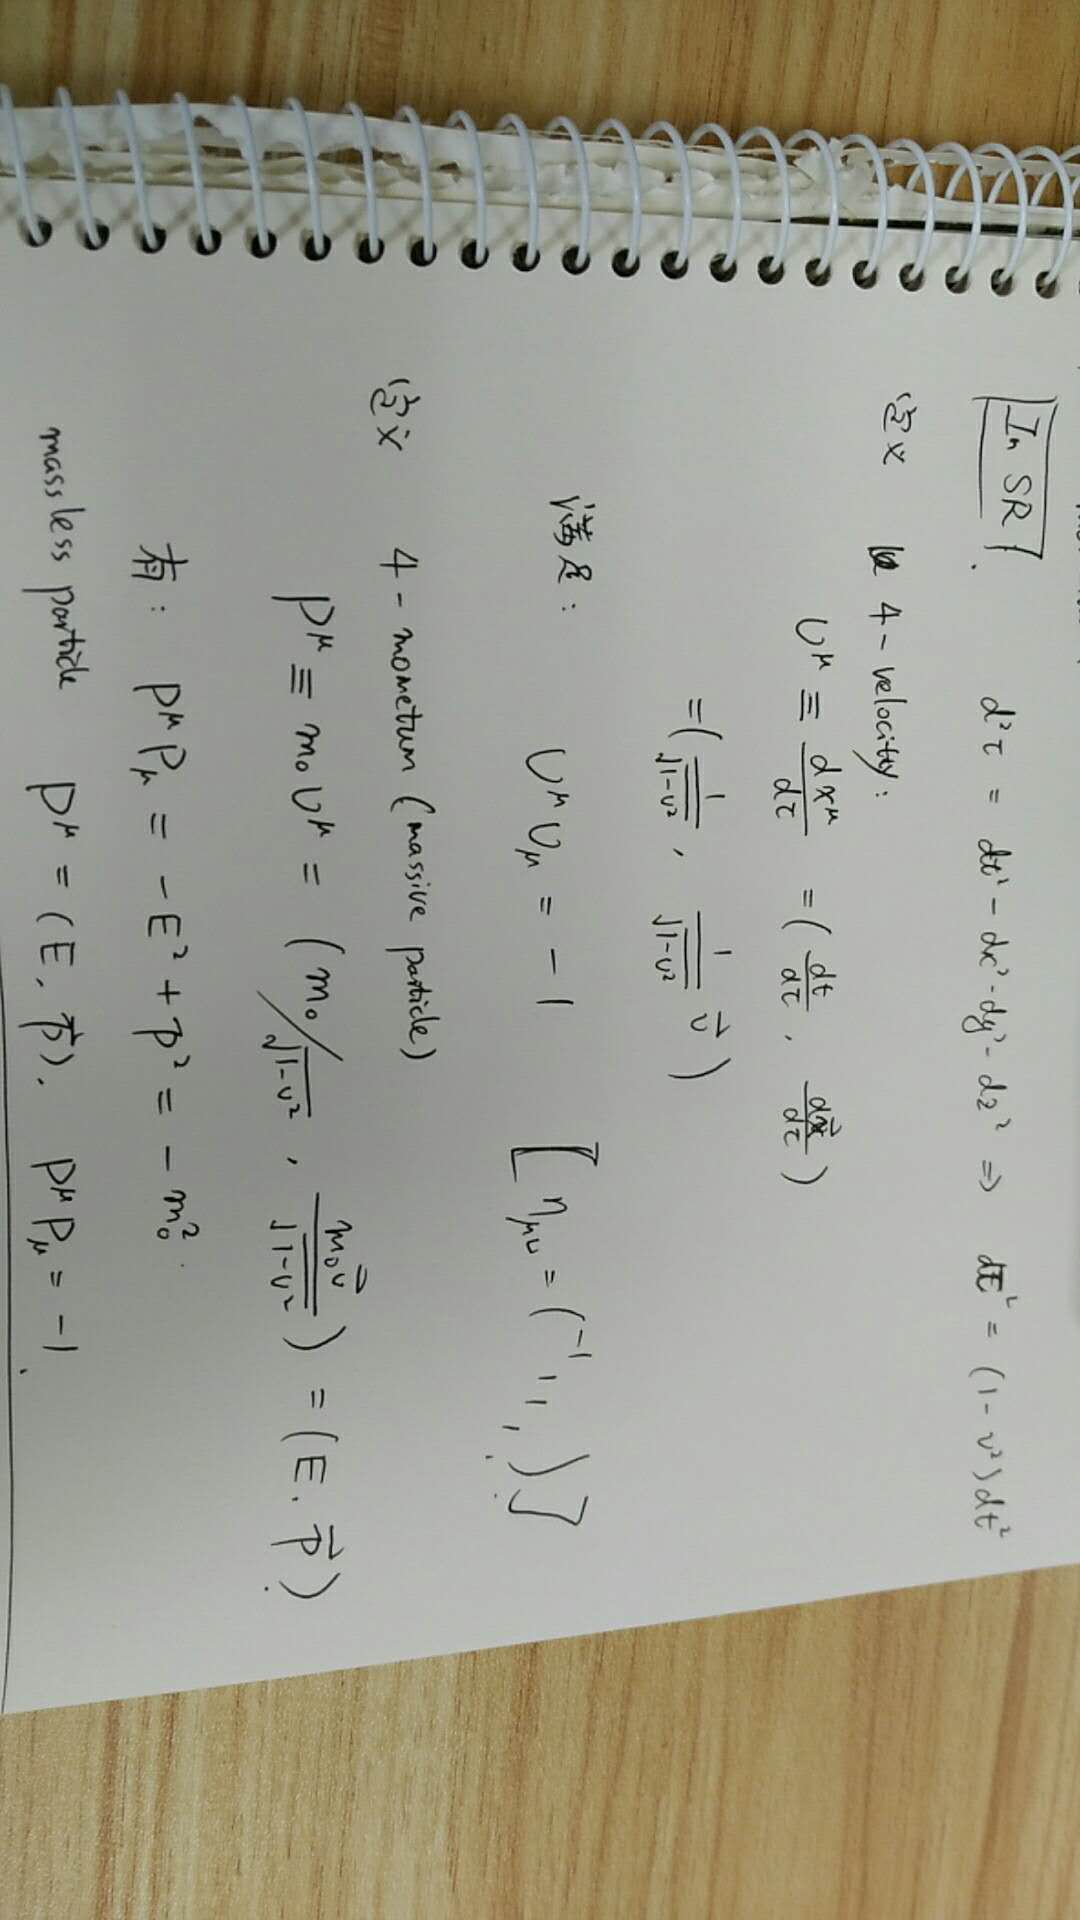 In SR. d²τ = dt² - dx² - dy² - dz² ⇒ dτ² = (1 - v²) dt²
定义 4 - velocity:
U^μ ≡ dx^μ/dτ = ( dt/dτ , dx⃗/dτ )
= ( 1/√(1-v²) , 1/√(1-v²) v⃗ )
满足: U^μ U_μ = -1 [ η_μν = ( -1 1 1 1 ) ]
定义 4 - mometum (massive particle)
P^μ ≡ m₀ U^μ = ( m₀/√(1-v²) , m₀v⃗/√(1-v²) ) = (E, P⃗).
有: P^μ P_μ = -E² + p² = -m₀².
massless particle P^μ = (E, p⃗). P^μ P_μ = -1.